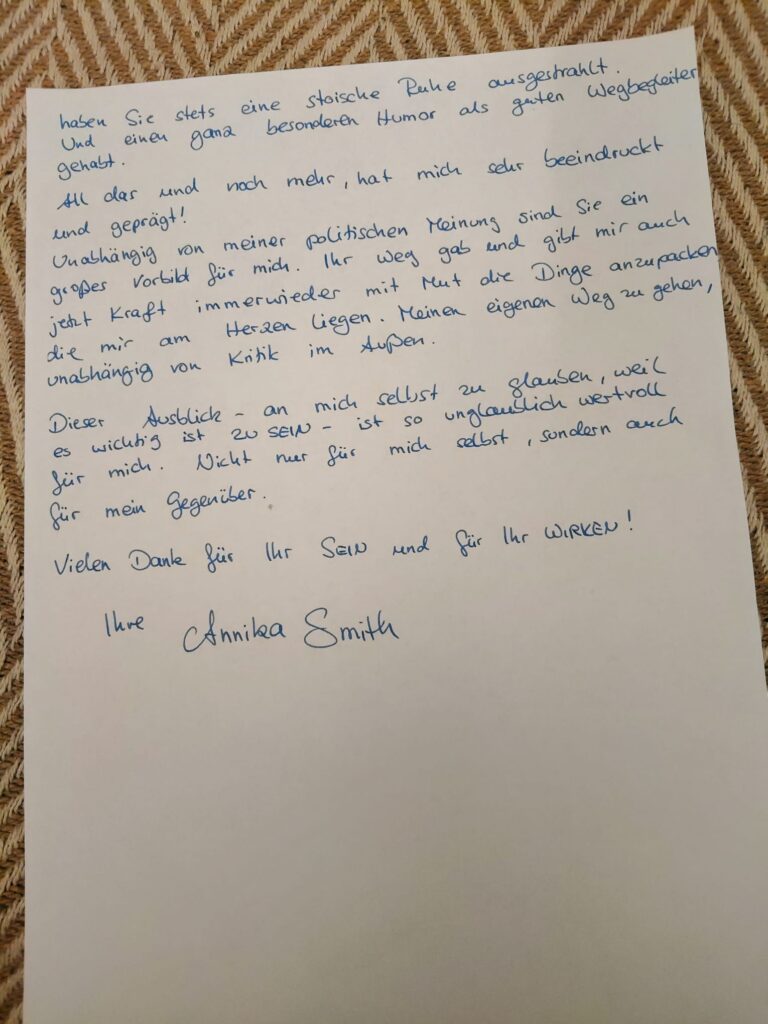 haben Sie stets eine stoische Ruhe ausgestrahlt.
Und einen ganz besonderen Humor als guten Wegbegleiter
gehabt.
All das und noch mehr, hat mich sehr beeindruckt
und geprägt!
Unabhängig von meiner politischen Meinung sind Sie ein
großes Vorbild für mich. Ihr Weg gab und gibt mir auch
jetzt Kraft immerwieder mit Mut die Dinge anzupacken
die mir am Herzen liegen. Meinen eigenen Weg zu gehen,
unabhängig von Kritik im Außen.
Dieser Ausblick - an mich selbst zu glauben, weil
es wichtig ist ZU SEIN - ist so unglaublich wertvoll
für mich. Nicht nur für mich selbst, sondern auch
für mein Gegenüber.
Vielen Dank für Ihr SEIN und für Ihr WIRKEN!
Ihre Annika Smith